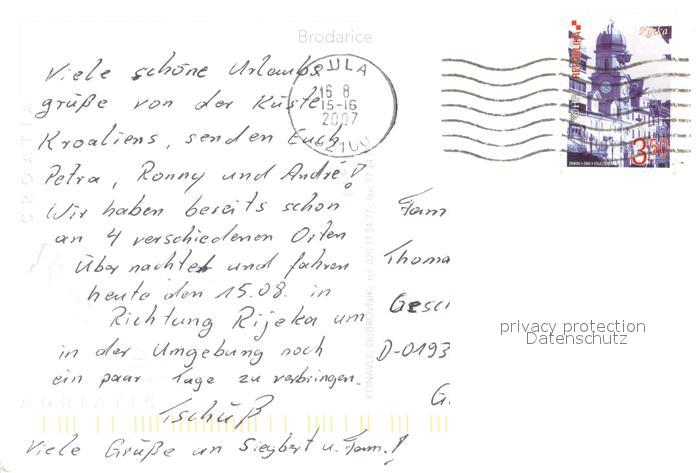 Brodarice
Viele schöne Urlaubs
grüße von der Küste
Kroatiens, senden Euch
Petra, Ronny und André!
Wir haben bereits schon
an 4 verschiedenen Orten
Übernachtet und fahren
heute den 15.08. in
Richtung Rijeka um
in der Umgebung noch
ein paar Tage zu verbringen.
Tschüß
Viele Grüße an Siegbert u. Fam.!
PULA
16 8
15-16
2007
52100
Rijeka
REPUBLIKA
3,50
CROATIA
ADRIATIC
Fam
Thoma
D-0193
privacy protection
Datenschutz